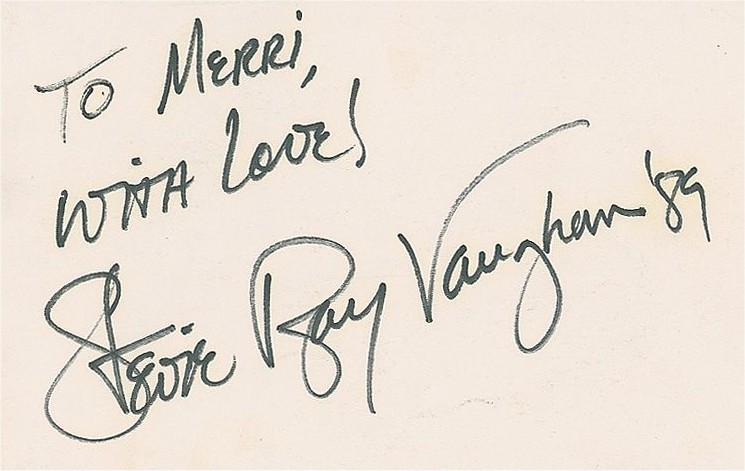 To Merri,
With Love!
Stevie Ray Vaughan '89